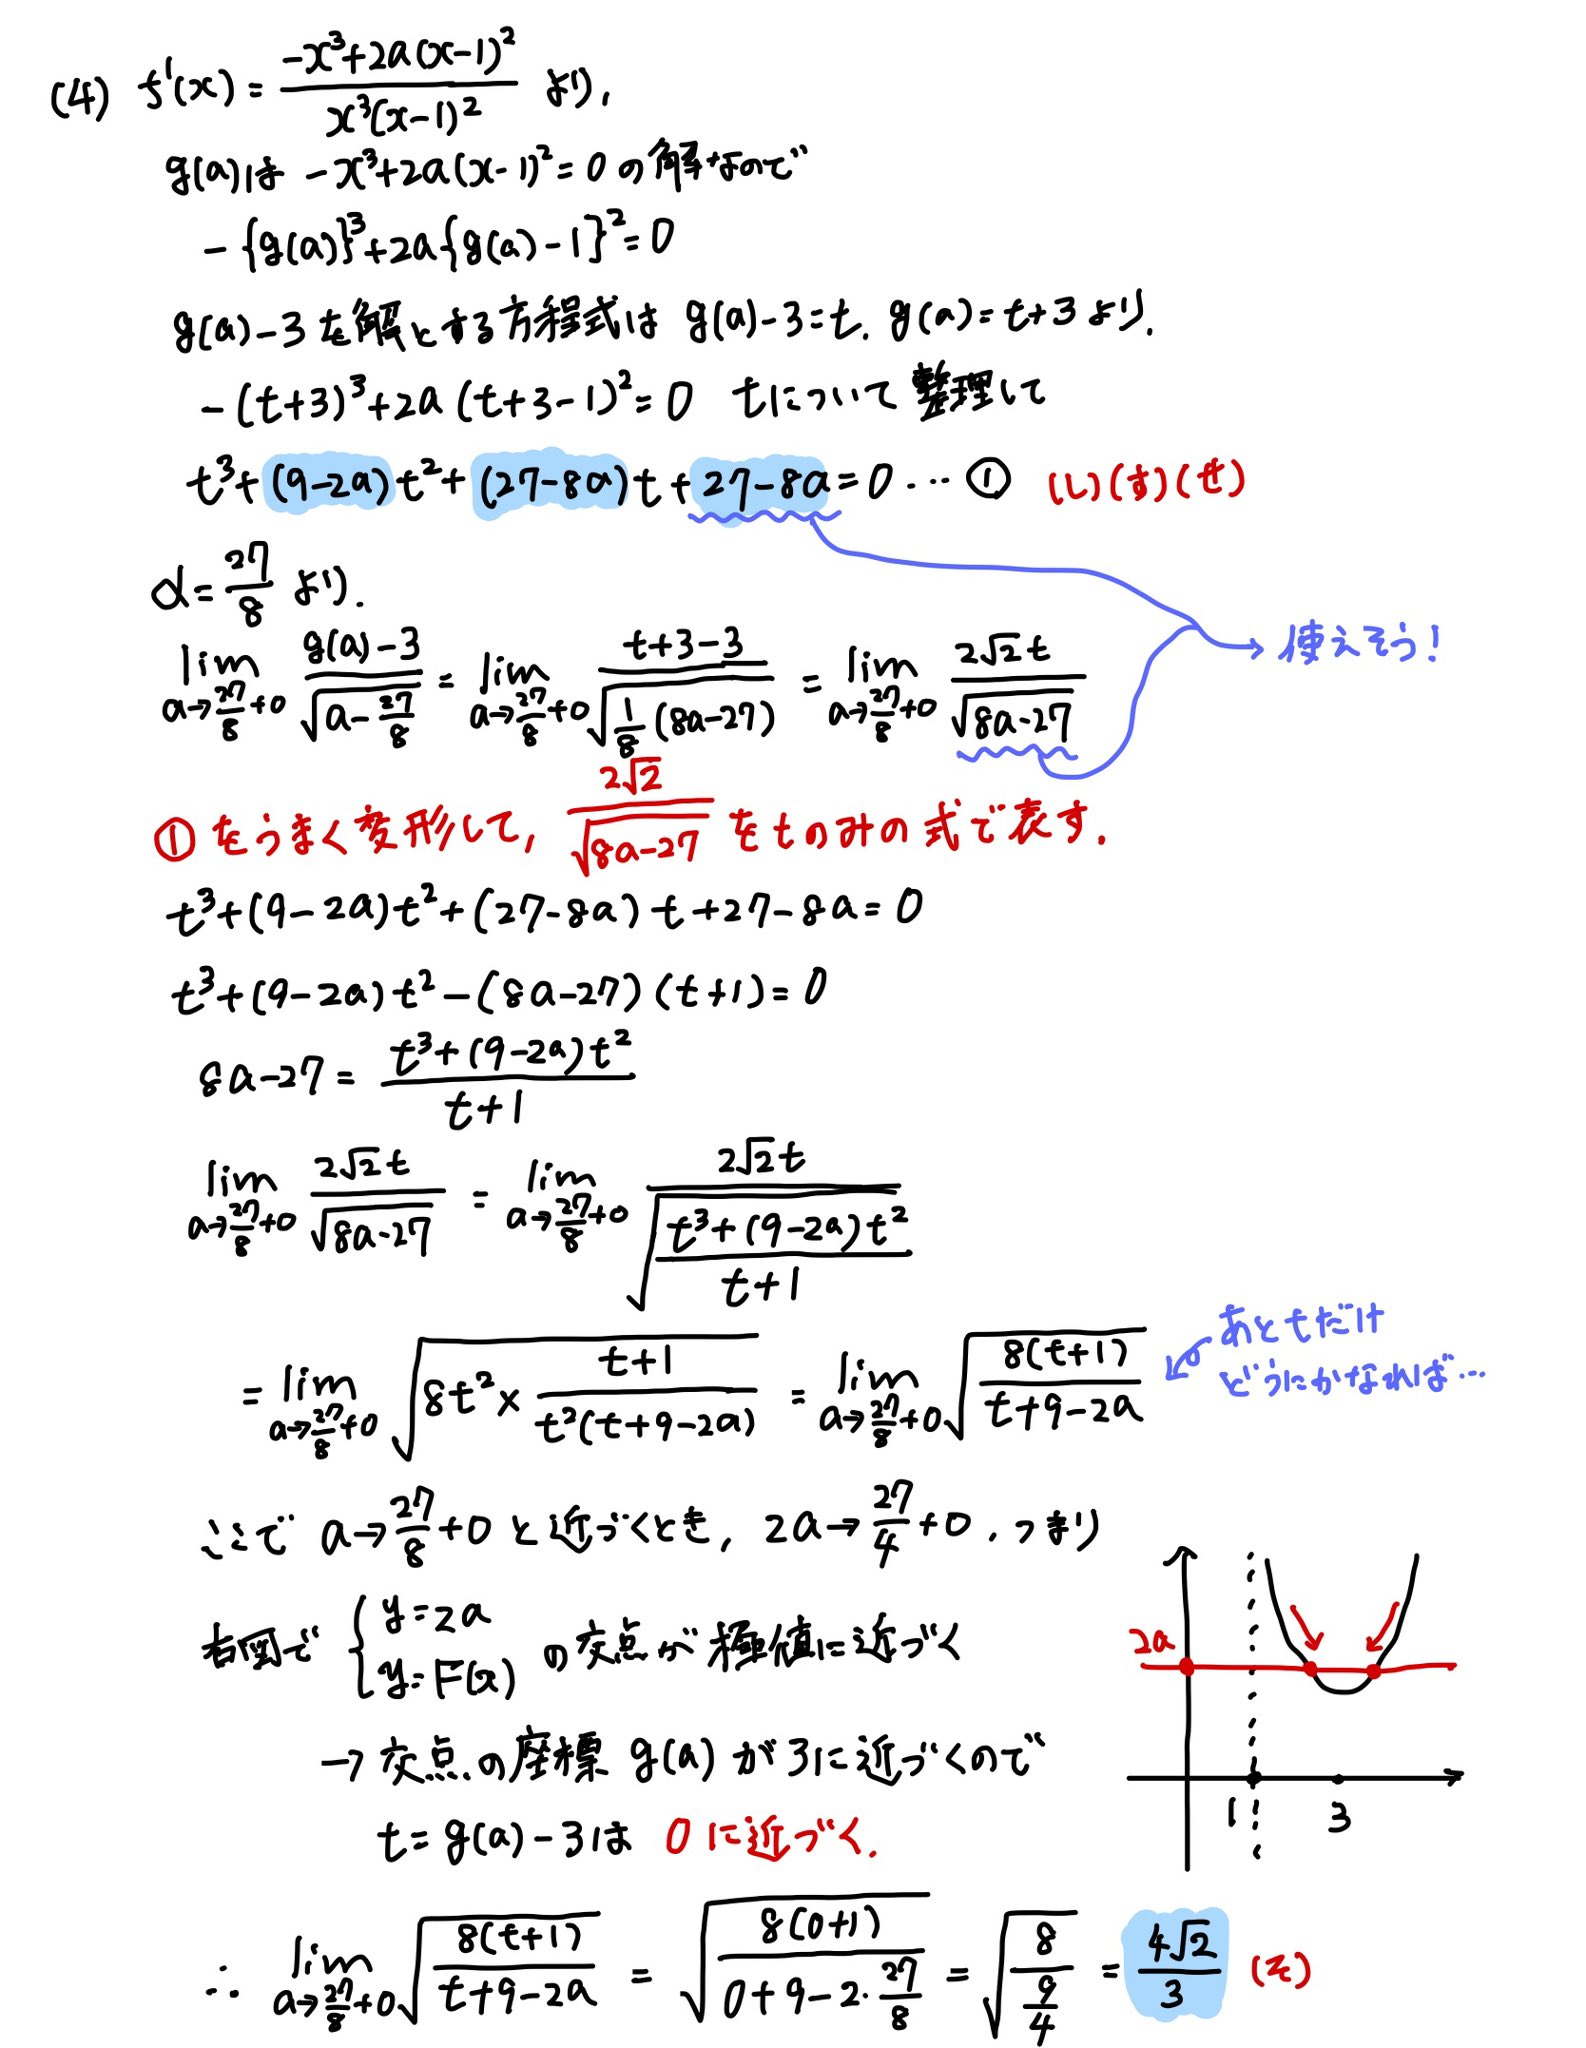 (4) f'(x) = \frac{-x^3+2a(x-1)^2}{x^3(x-1)^2} より,
g(a)は -x^3+2a(x-1)^2=0 の解なので
-{g(a)}^3+2a{g(a)-1}^2=0
g(a)-3を解とする方程式は g(a)-3=t. g(a)=t+3より.
-(t+3)^3+2a(t+3-1)^2=0 tについて整理して
t^3+(9-2a)t^2+(27-8a)t+27-8a=0 … ① (し)(す)(せ)
α=\frac{27}{8} より.
\lim_{a→\frac{27}{8}+0} \frac{g(a)-3}{\sqrt{a-\frac{27}{8}}} = \lim_{a→\frac{27}{8}+0} \frac{t+3-3}{\sqrt{\frac{1}{8}(8a-27)}} = \lim_{a→\frac{27}{8}+0} \frac{2\sqrt{2}t}{\sqrt{8a-27}}
使えそう!
①をうまく変形して, \frac{2\sqrt{2}}{\sqrt{8a-27}} をtのみの式で表す.
t^3+(9-2a)t^2+(27-8a)t+27-8a=0
t^3+(9-2a)t^2-(8a-27)(t+1)=0
8a-27 = \frac{t^3+(9-2a)t^2}{t+1}
\lim_{a→\frac{27}{8}+0} \frac{2\sqrt{2}t}{\sqrt{8a-27}} = \lim_{a→\frac{27}{8}+0} \frac{2\sqrt{2}t}{\sqrt{\frac{t^3+(9-2a)t^2}{t+1}}}
= \lim_{a→\frac{27}{8}+0} \sqrt{8t^2×\frac{t+1}{t^2(t+9-2a)}} = \lim_{a→\frac{27}{8}+0} \sqrt{\frac{8(t+1)}{t+9-2a}}
あとtだけ
どうにかなれば…
ここで a→\frac{27}{8}+0 と近づくとき, 2a→\frac{27}{4}+0, つまり
右図で { y=2a
y=F(x) の交点が極値に近づく
→交点の座標 g(a)が3に近づくので
t=g(a)-3は 0に近づく.
2a
1
3
∴ \lim_{a→\frac{27}{8}+0} \sqrt{\frac{8(t+1)}{t+9-2a}} = \sqrt{\frac{8(0+1)}{0+9-2・\frac{27}{8}}} = \sqrt{\frac{8}{\frac{9}{4}}} = \frac{4\sqrt{2}}{3} (そ)